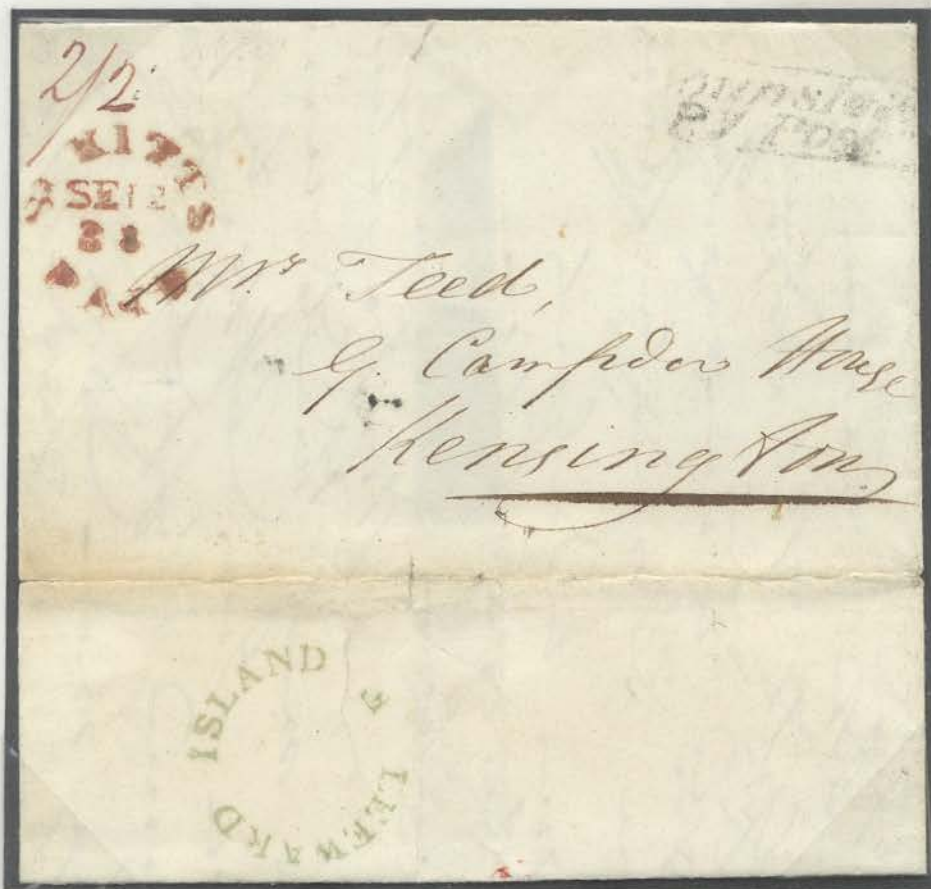 2/2
KITTS
SE 12
Py Post
Mrs. Teed,
Campden House
Kensington
LEEWARD ISLAND